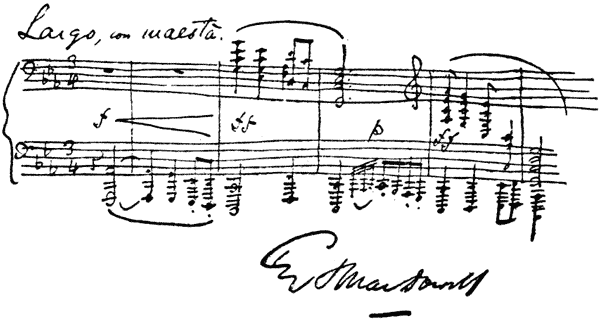 Largo, con maestà.
3 4
f ff p ff
3 4
E A MacDowell